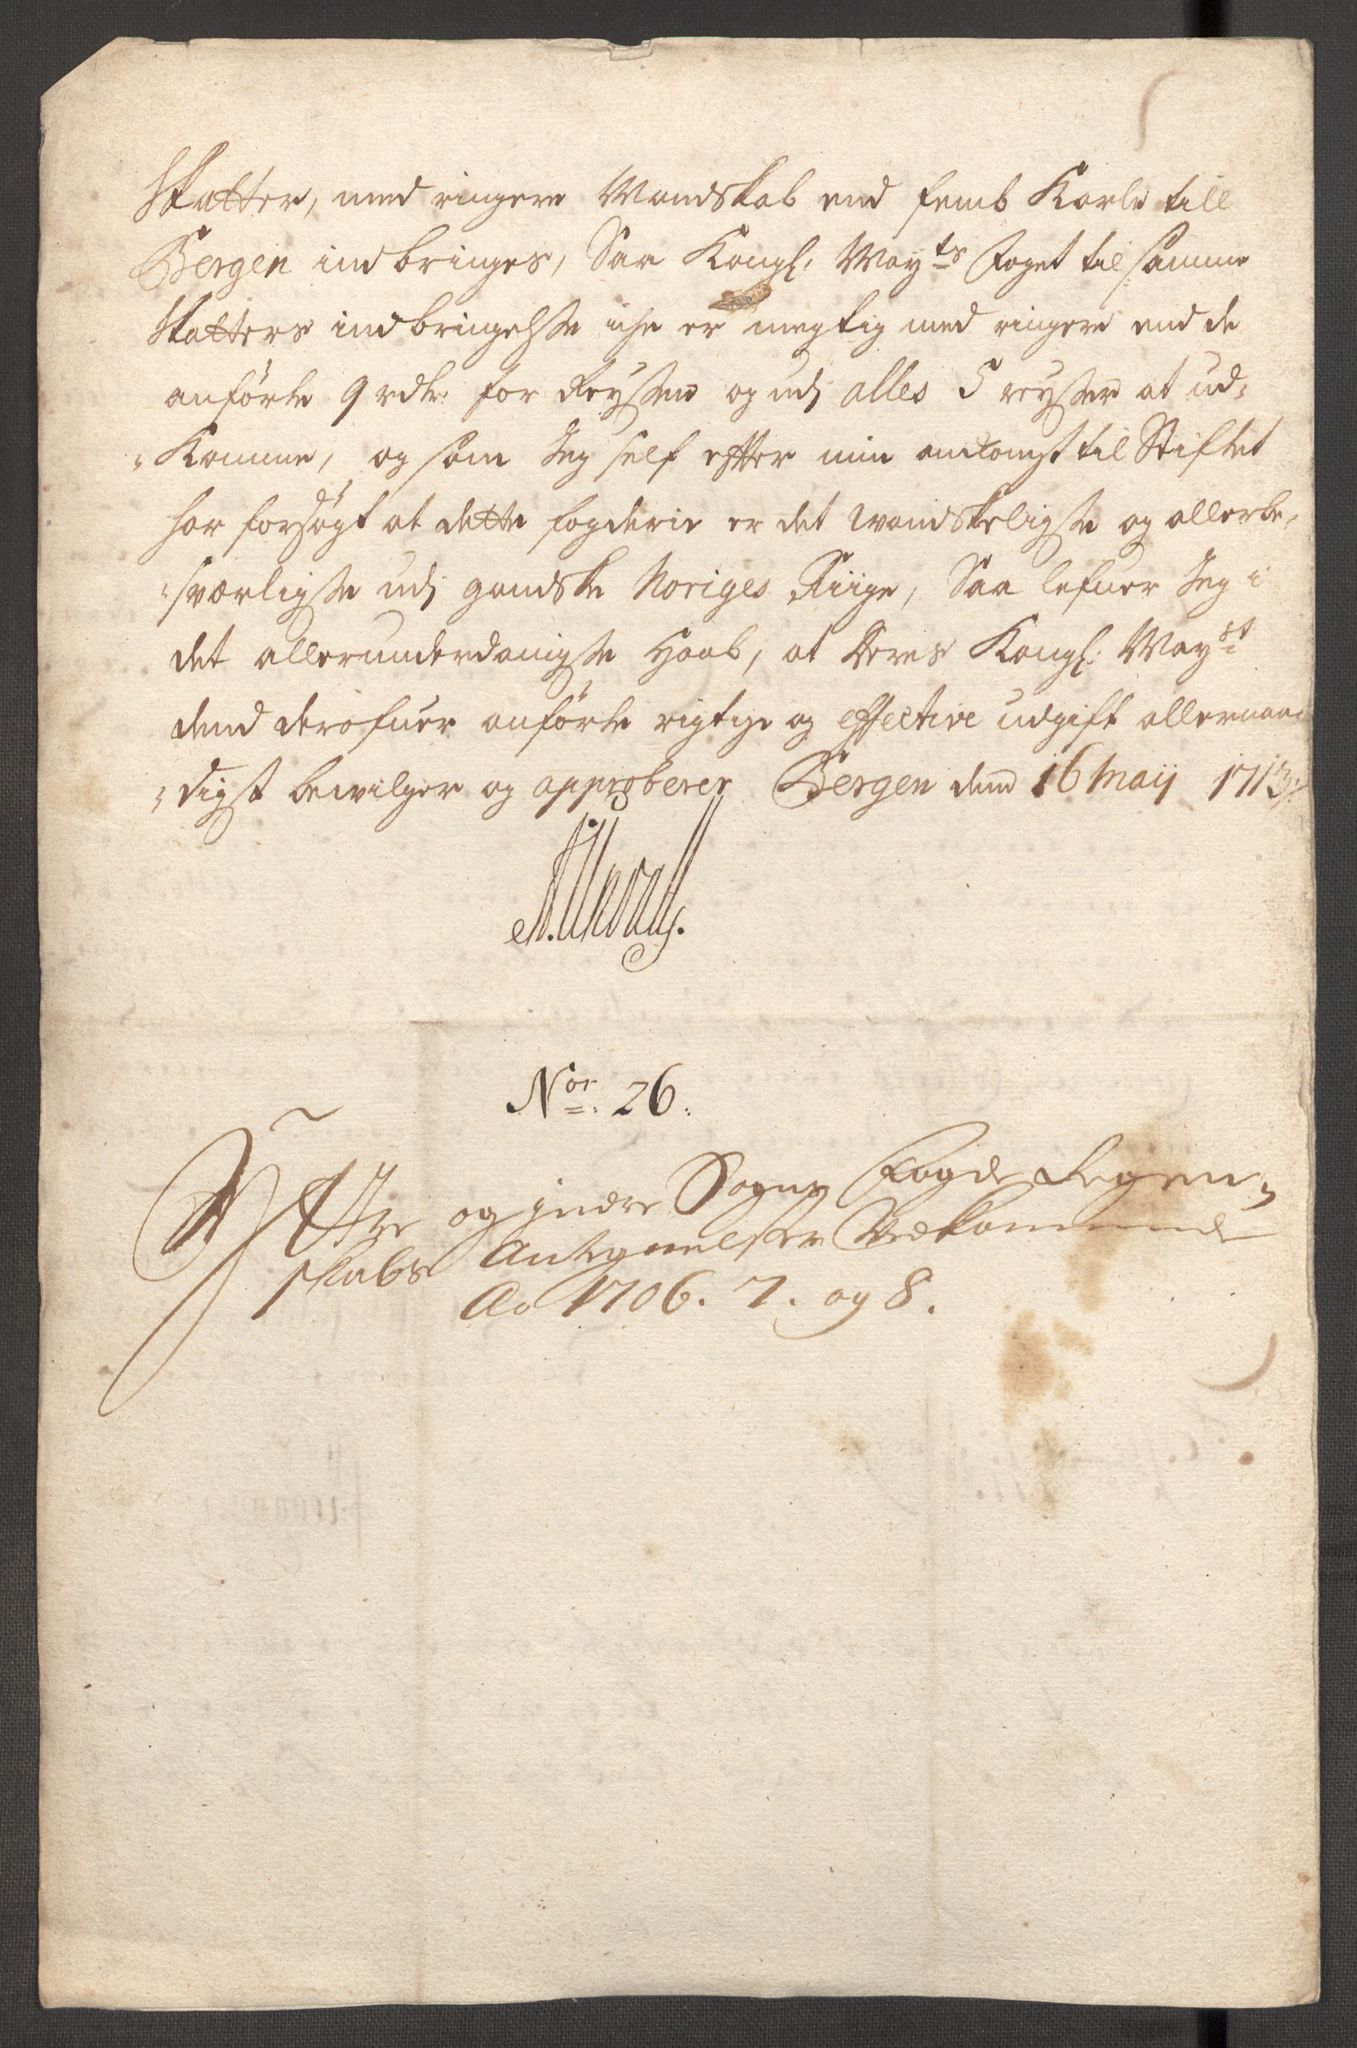 Skatter, med ringere Mandskab end femb Karle till
Bergen indbringes, Saa Kongl. May:ts Foget til samme
Skatters indbringelsse iche er megtig med ringere end de
anførte 9 rdlr: for Reyssen og udj alles 5 reysser at ud-
Komme, og som Jeg self effter min ankomst til Stiftet
har forsøgt at dette fogderie er det vandskeligste og allerbe-
sværligste udj gandske Noriges Riige, Saa lefuer Jeg i
det allerunderdanigste Haab, at Deres Kongl: May:st
dend derofuer anførte rigtige og effective udgift allernaa-
digst bevilger og approberer Bergen dend 16 Maij 1713
No:r 26.
Ytre og indre Sogns Fogde Regen-
skabs Antegnelser Vedkommende
Ao 1706. 7. og 8.